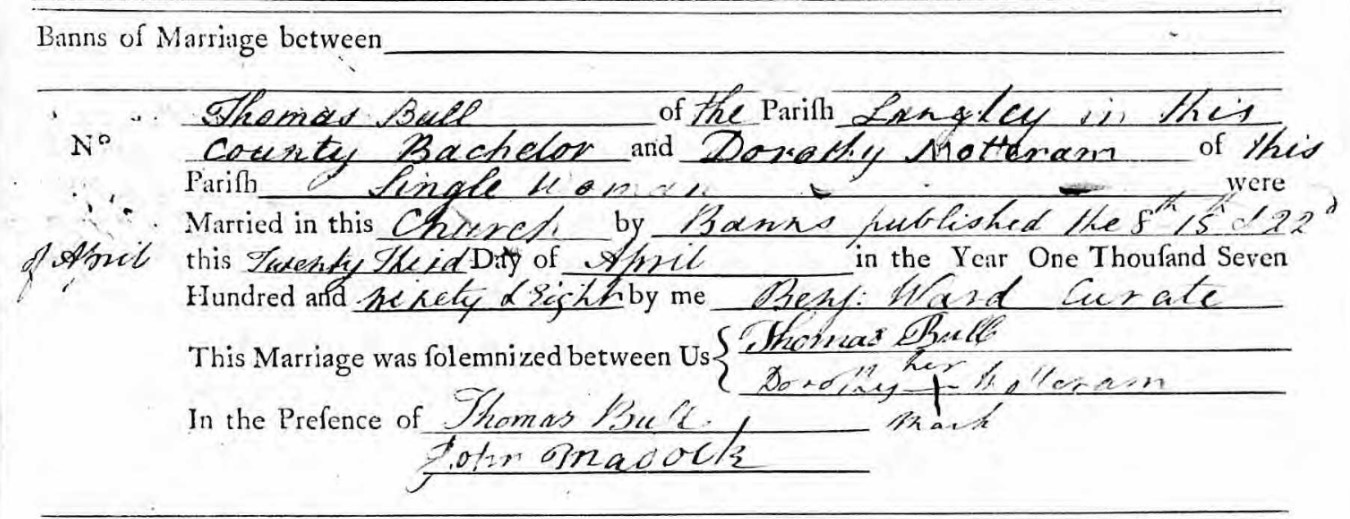 Banns of Marriage between
Thomas Bull of the Pariſh Langley in this
No County Bachelor and Dorothy Motteram of this
Pariſh Single Woman were
Married in this Church by Banns published the 8th 15th & 22d
of April this Twenty Third Day of April in the Year One Thouſand Seven
Hundred and ninety & Eight by me Benj: Ward Curate
This Marriage was ſolemnized between Us { Thomas Bull
Dorothy her Motteram
In the Preſence of Thomas Bull mark
John Madock